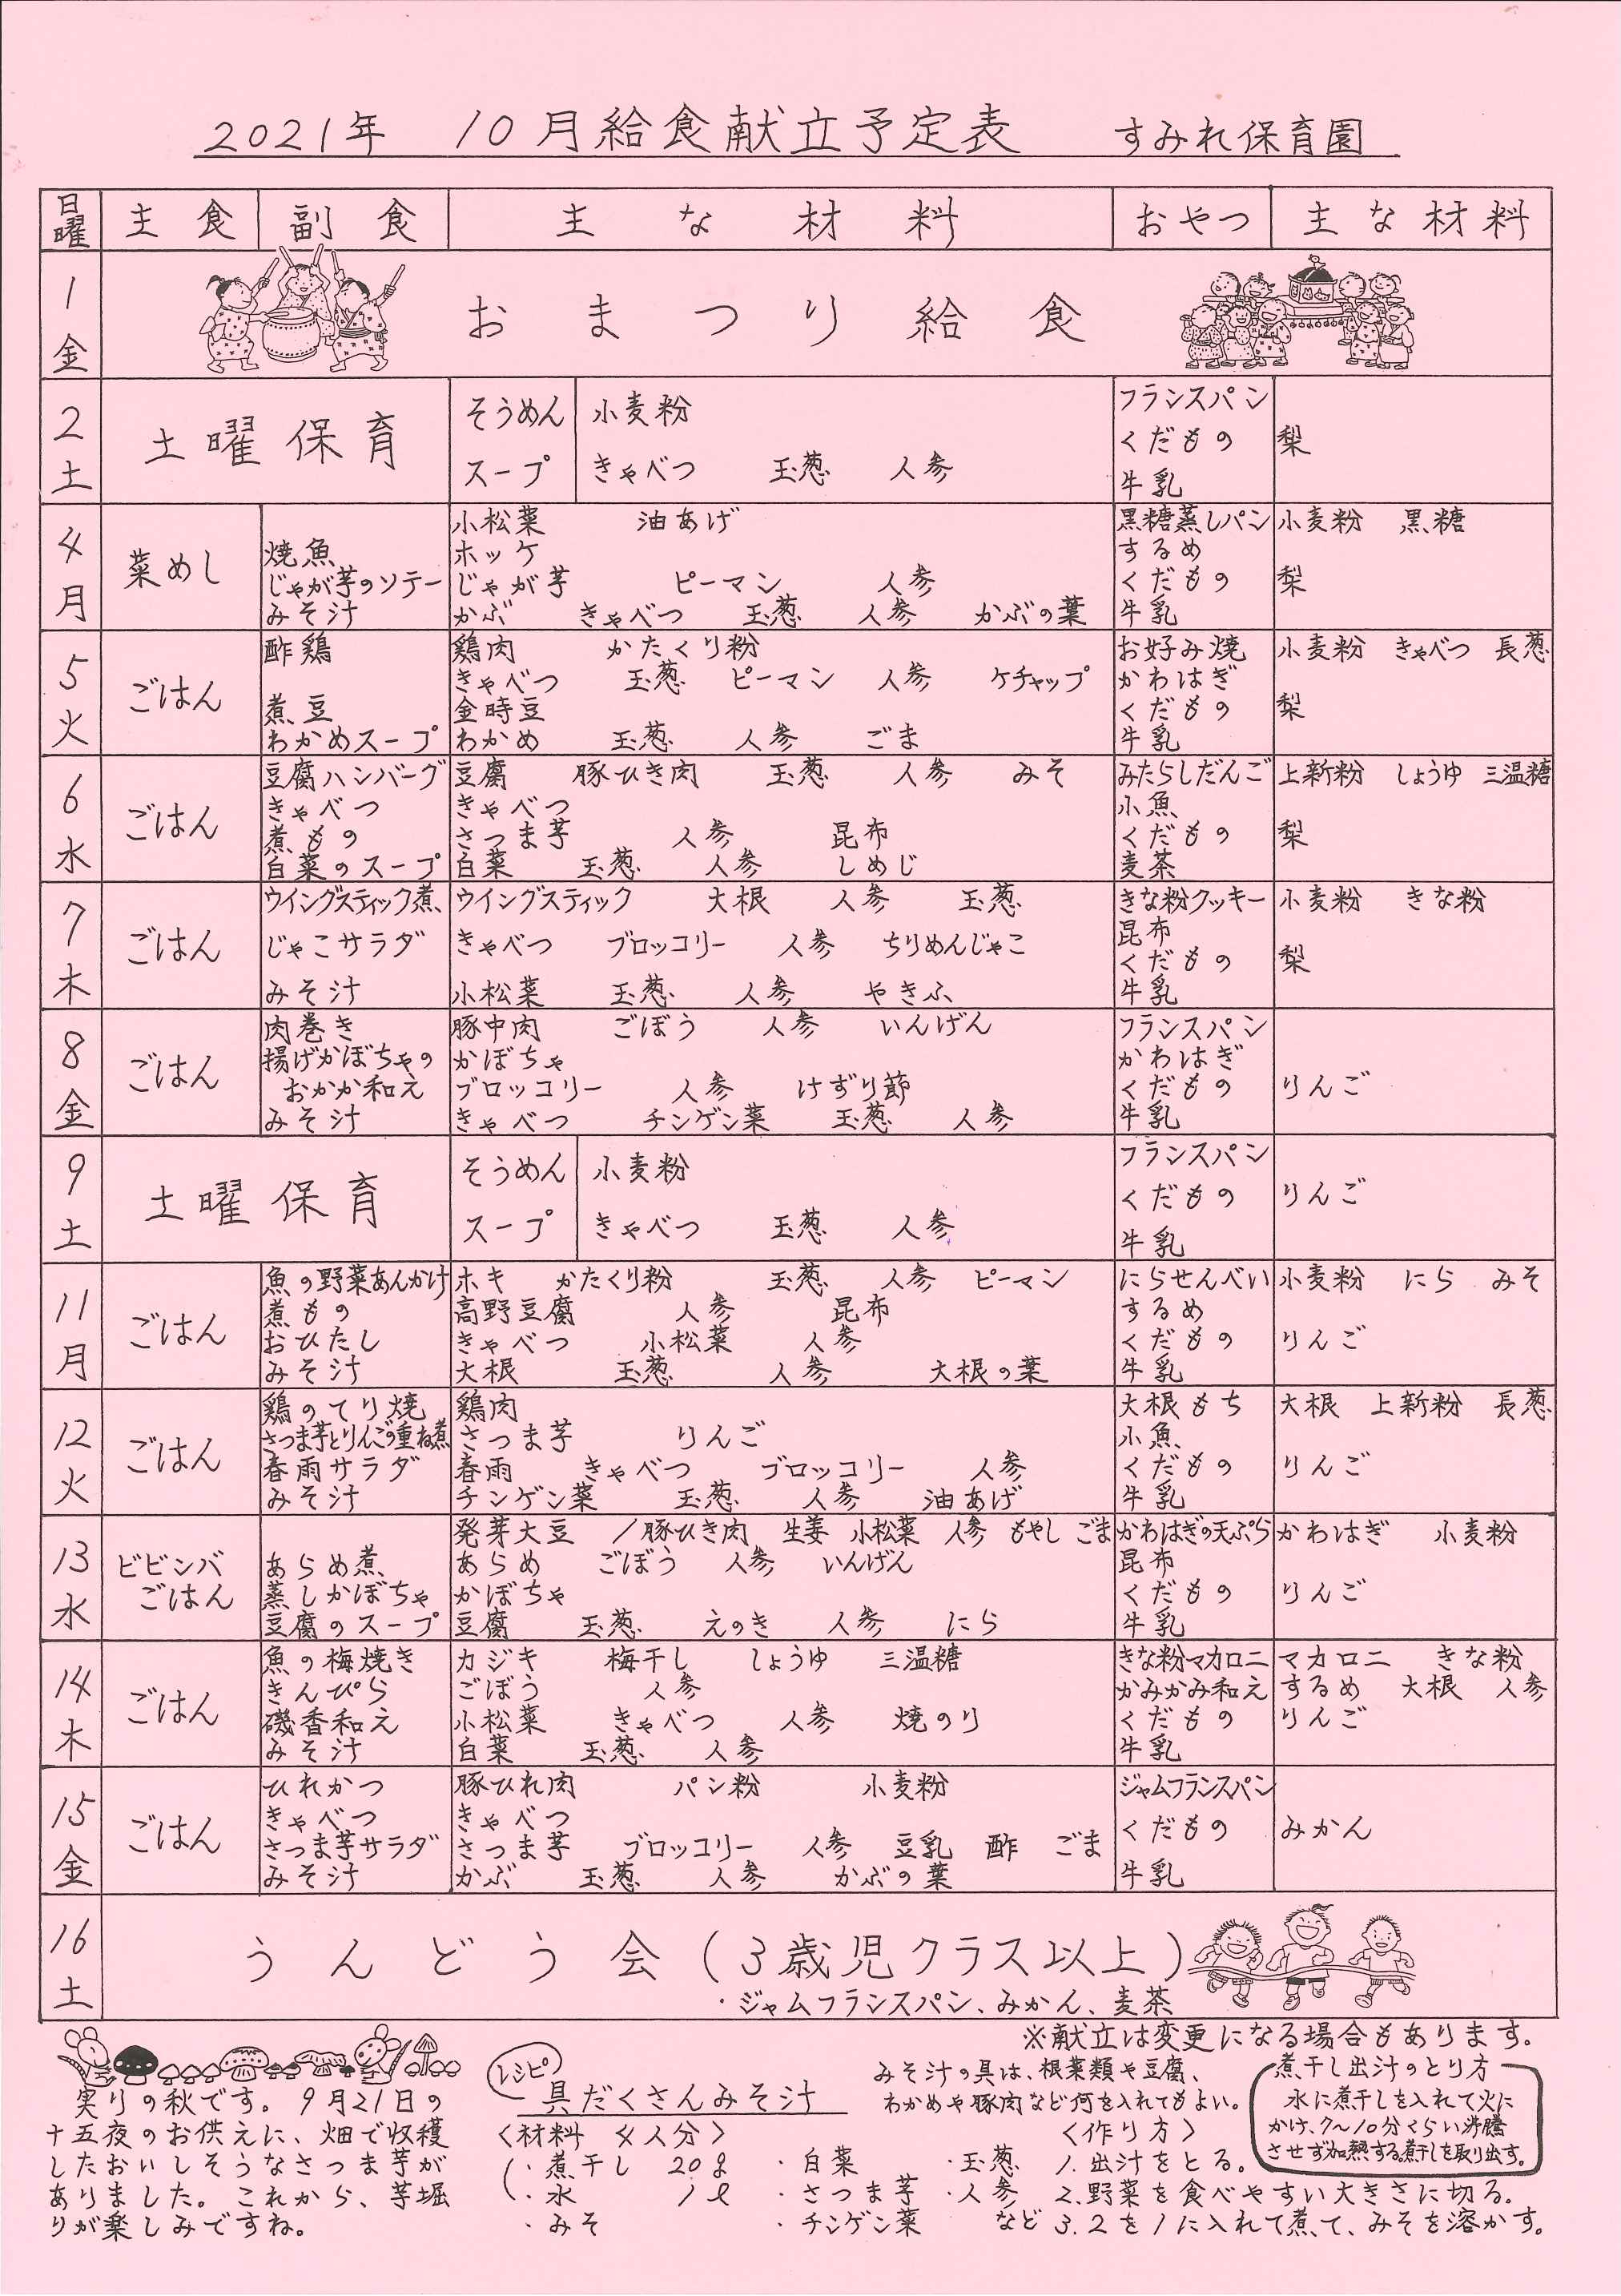 2021年 10月給食献立予定表 すみれ保育園
日曜 主食 副食 主な材料 おやつ 主な材料
1 金 おまつり給食
2 土 土曜保育
そうめん 小麦粉
スープ きゃべつ 玉葱 人参
フランスパン
くだもの 梨
牛乳
4 月 菜めし
小松菜 油あげ
焼魚 ホッケ
じゃが芋のソテー じゃが芋 ピーマン 人参
みそ汁 かぶ きゃべつ 玉葱 人参 かぶの葉
黒糖蒸しパン 小麦粉 黒糖
するめ
くだもの 梨
牛乳
5 火 ごはん
酢鶏 鶏肉 かたくり粉
きゃべつ 玉葱 ピーマン 人参 ケチャップ
煮豆 金時豆
わかめスープ わかめ 玉葱 人参 ごま
お好み焼 小麦粉 きゃべつ 長葱
かわはぎ
くだもの 梨
牛乳
6 水 ごはん
豆腐ハンバーグ 豆腐 豚ひき肉 玉葱 人参 みそ
きゃべつ きゃべつ
煮もの さつま芋 人参 昆布
白菜のスープ 白菜 玉葱 人参 しめじ
みたらしだんご 上新粉 しょうゆ 三温糖
小魚
くだもの 梨
麦茶
7 木 ごはん
ウイングスティック煮 ウイングスティック 大根 人参 玉葱
じゃこサラダ きゃべつ ブロッコリー 人参 ちりめんじゃこ
みそ汁 小松菜 玉葱 人参 やきふ
きな粉クッキー 小麦粉 きな粉
昆布
くだもの 梨
牛乳
8 金 ごはん
肉巻き 豚中肉 ごぼう 人参 いんげん
揚げかぼちゃの かぼちゃ
おかか和え ブロッコリー 人参 けずり節
みそ汁 きゃべつ チンゲン菜 玉葱 人参
フランスパン
かわはぎ
くだもの りんご
牛乳
9 土 土曜保育
そうめん 小麦粉
スープ きゃべつ 玉葱 人参
フランスパン
くだもの りんご
牛乳
11 月 ごはん
魚の野菜あんかけ ホキ かたくり粉 玉葱 人参 ピーマン
煮もの 高野豆腐 人参 昆布
おひたし きゃべつ 小松菜 人参
みそ汁 大根 玉葱 人参 大根の葉
にらせんべい 小麦粉 にら みそ
するめ
くだもの りんご
牛乳
12 火 ごはん
鶏のてり焼 鶏肉
さつま芋とりんごの重ね煮 さつま芋 りんご
春雨サラダ 春雨 きゃべつ ブロッコリー 人参
みそ汁 チンゲン菜 玉葱 人参 油あげ
大根もち 大根 上新粉 長葱
小魚
くだもの りんご
牛乳
13 水 ビビンバ
ごはん
発芽大豆 / 豚ひき肉 生姜 小松菜 人参 もやし ごま
あらめ煮 あらめ ごぼう 人参 いんげん
蒸しかぼちゃ かぼちゃ
豆腐のスープ 豆腐 玉葱 えのき 人参 にら
かわはぎの天ぷら かわはぎ 小麦粉
昆布
くだもの りんご
牛乳
14 木 ごはん
魚の梅焼き カジキ 梅干し しょうゆ 三温糖
きんぴら ごぼう 人参
磯香和え 小松菜 きゃべつ 人参 焼のり
みそ汁 白菜 玉葱 人参
きな粉マカロニ マカロニ きな粉
かみかみ和え するめ 大根 人参
くだもの りんご
牛乳
15 金 ごはん
ひれかつ 豚ひれ肉 パン粉 小麦粉
きゃべつ きゃべつ
さつま芋サラダ さつま芋 ブロッコリー 人参 豆乳 酢 ごま
みそ汁 かぶ 玉葱 人参 かぶの葉
ジャムフランスパン
くだもの みかん
牛乳
16 土 うんどう会(3歳児クラス以上)
・ジャムフランスパン、みかん、麦茶
※献立は変更になる場合もあります。
実りの秋です。9月21日の
十五夜のお供えに、畑で収穫
したおいしそうなさつま芋が
ありました。これから、芋堀
りが楽しみですね。
レシピ
具だくさんみそ汁
みそ汁の具は、根菜類や豆腐、
わかめや豚肉など何を入れてもよい。
〈材料 4人分〉
・煮干し 20g ・白菜 ・玉葱
・水 1ℓ ・さつま芋 ・人参
・みそ ・チンゲン菜 など
〈作り方〉
1.出汁をとる。
2.野菜を食べやすい大きさに切る。
3.2を1に入れて煮て、みそを溶かす。
煮干し出汁のとり方
水に煮干しを入れて火に
かけ、7〜10分くらい沸騰
させず加熱する。煮干しを取り出す。